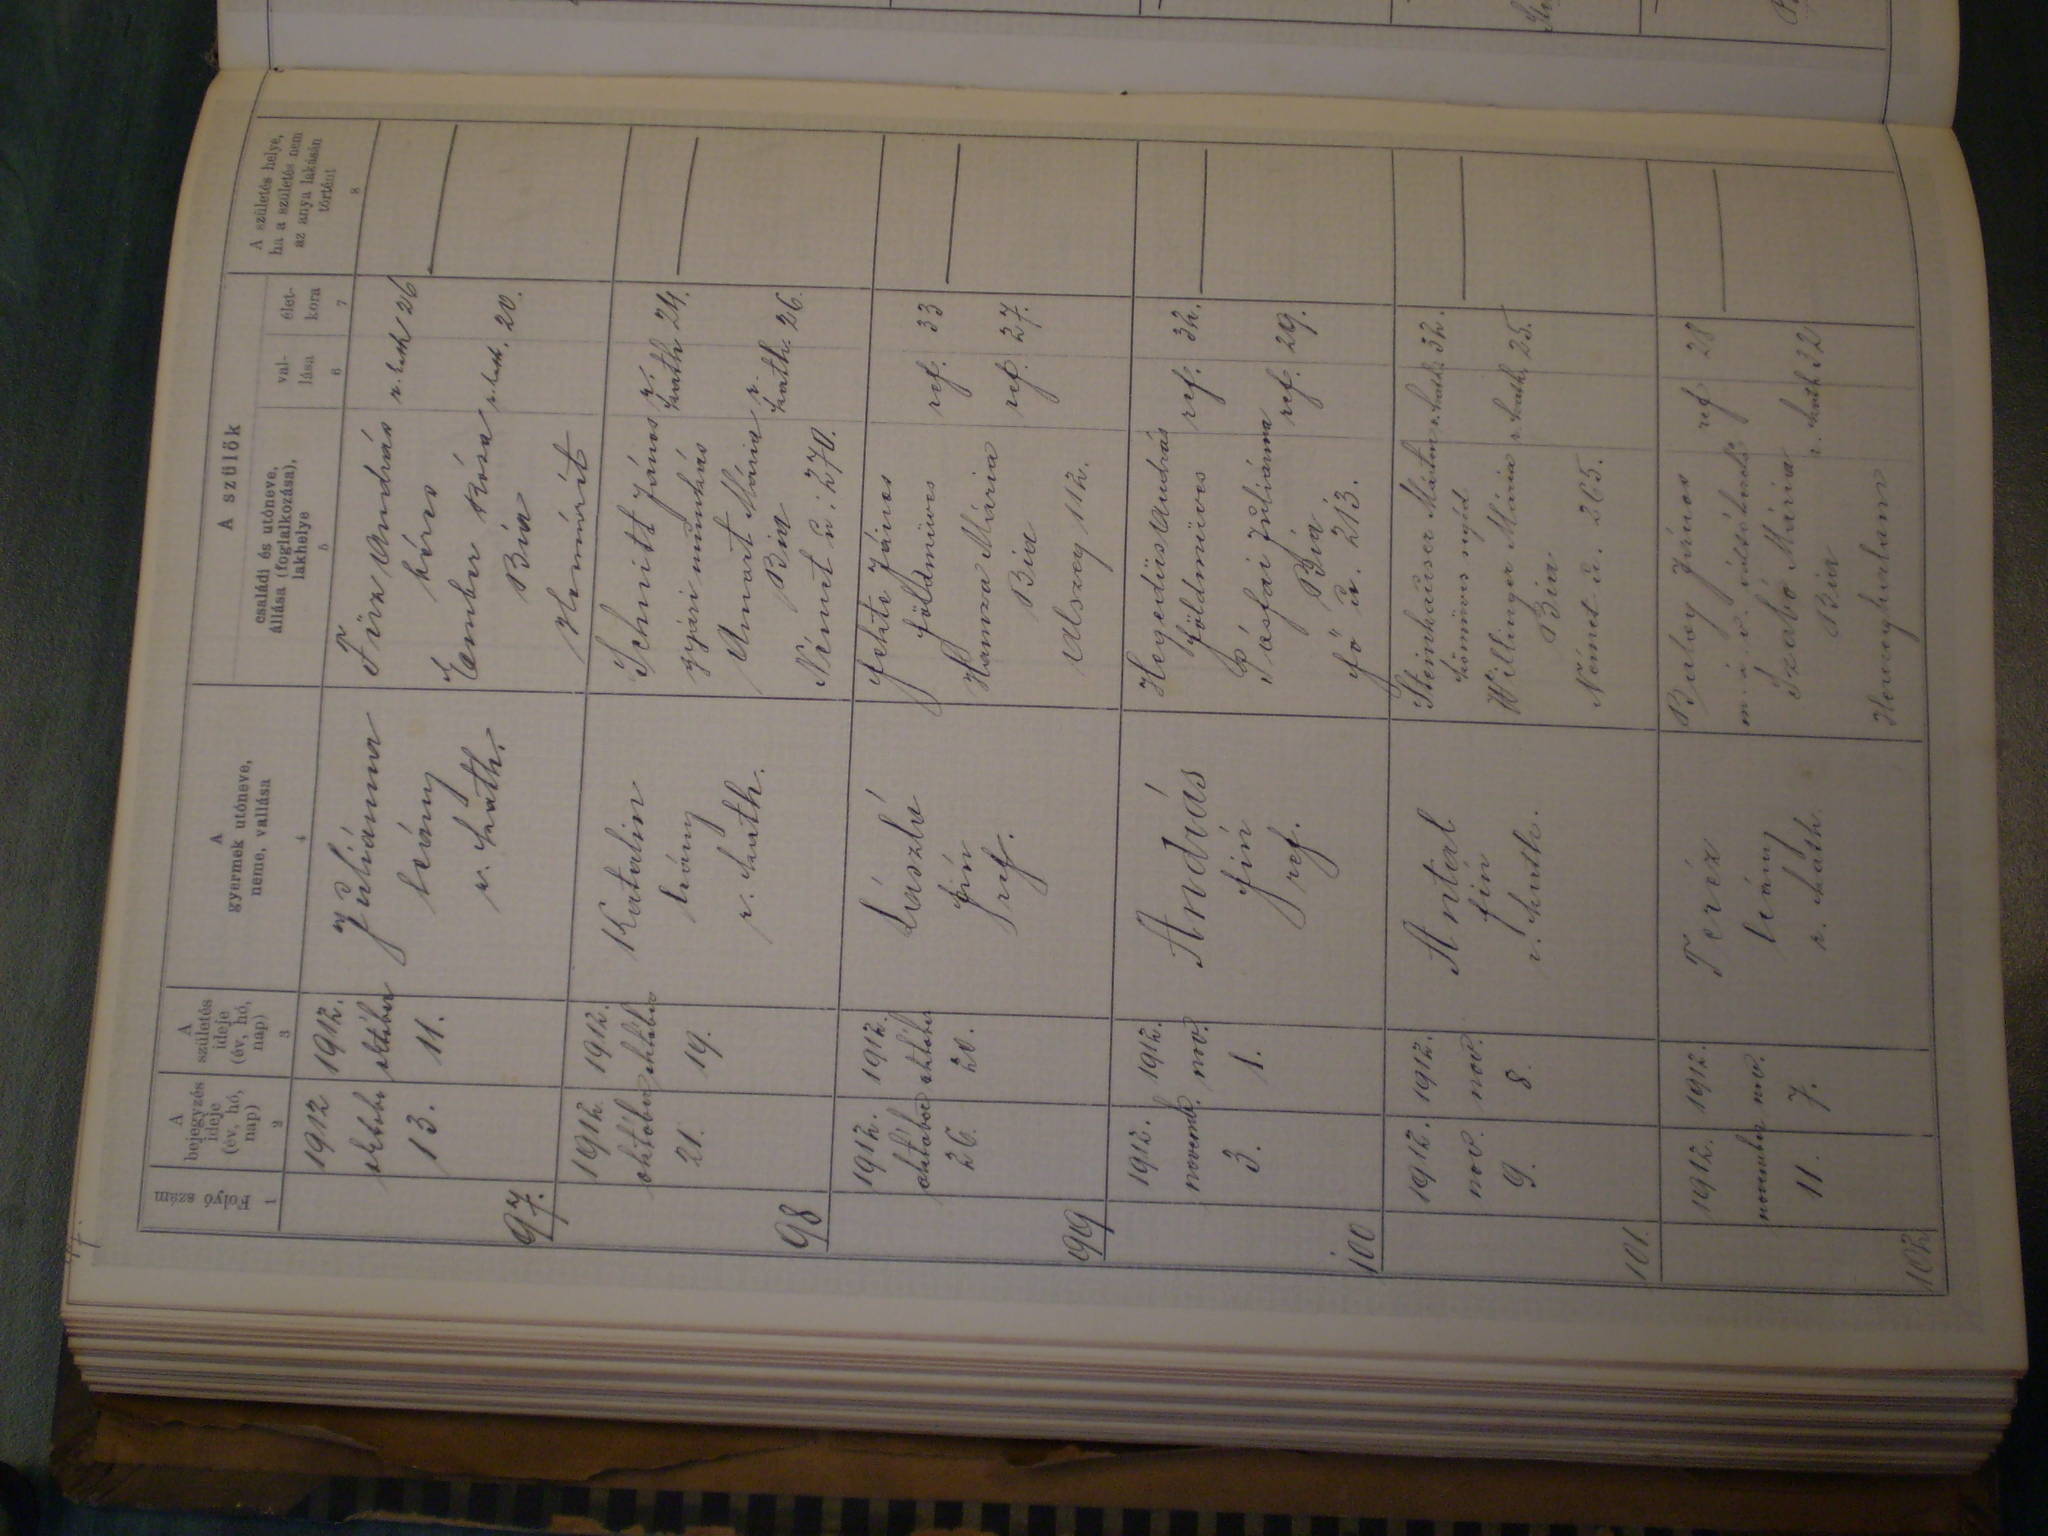 A szülők
Folyó szám
A bejegyzés ideje (év, hó, nap)
A születés ideje (év, hó, nap)
A gyermek utóneve, neme, vallása
családi és utóneve, állása (foglalkozása), lakhelye
vallása
életkora
A születés helye, ha a születés nem az anya lakásán történt
1
2
3
4
5
6
7
8
97.
1912 október 13.
1912. október 11.
Juliánna
leány
r. kath.
András r. kath 26
Ember Róza r. kath. 20.
Bia
98
1912. október 21.
1912. október 19.
Katalin
leány
r. kath.
Schmitt János r. kath 24.
gyári munkás
Mária r. kath. 26.
Bia
Német u. 270.
99
1912. október 26.
1912. október 20.
László
fiú
ref.
Fekete János ref. 33
földmüves
Hamza Mária ref. 27.
Bia
Alszeg 112.
100
1912. novemb. 3.
1912. nov. 1.
András
fiú
ref.
Hegedüs András ref. 32.
földmüves
Pásfai Juliánna ref. 29.
Bia
Fő u. 213.
101.
1912. nov. 9.
1912. nov. 8.
Antal
fiú
r. kath.
Steinhauser Márton r. kath. 32.
kőmüves
Willinger Mária r. kath. 25.
Bia
Német u. 265.
102.
1912. november 11.
1912. nov. 7.
Teréz
leány
r. kath.
János ref 28
m. á. v.
Szabó Mária r. kath 32
Bia